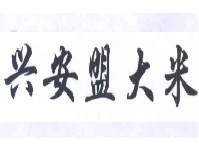 兴安盟大米